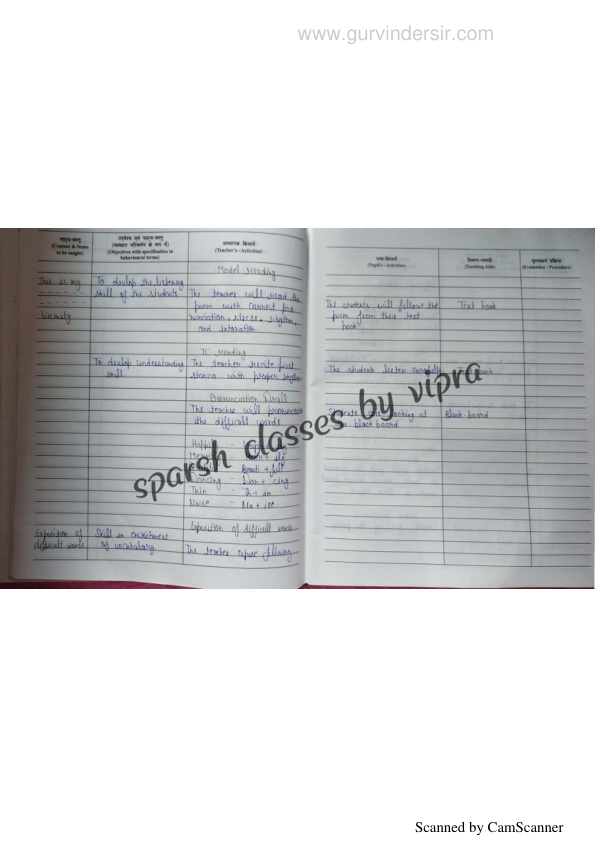 www.gurvindersir.com
पाठ्य-वस्तु
(Content & Items
to be taught)
उद्देश्य एवं पाठ्य-वस्तु
(व्यवहार परिवर्तन के रूप में)
(Objectives with specification in
behavioural terms)
अध्यापक क्रियायें
(Teacher's - Activities)
Model reading
This is my
- - - - - -
- - - - - -
Vicinity
To develop the listening
skill of the students
The teacher will read the
poem with correct pro
nunciation, stress, rhythm,
and intonation
T. reading
To develop understanding
skill
The teacher recite first
stanza with proper rhythm
Pronunciation Drill
The teacher will pronounce
the difficult words
Beauti + full
Dancing - Dan + cing
Thin - Th + in
Exposition of difficult words
Exposition of
difficult words
Skill in enrichment
of vocabulary
The teacher expose following
छात्र-क्रियायें
(Pupil's - Activities)
शिक्षण-सामग्री
(Teaching Aids)
मूल्यांकन प्रक्रिया
(Evaluation - Procedure)
The students will follow the
poem from their text
book
Text book
The students listen carefully
Students are looking at
black board
Black-board
sparsh classes by vipra
Scanned by CamScanner